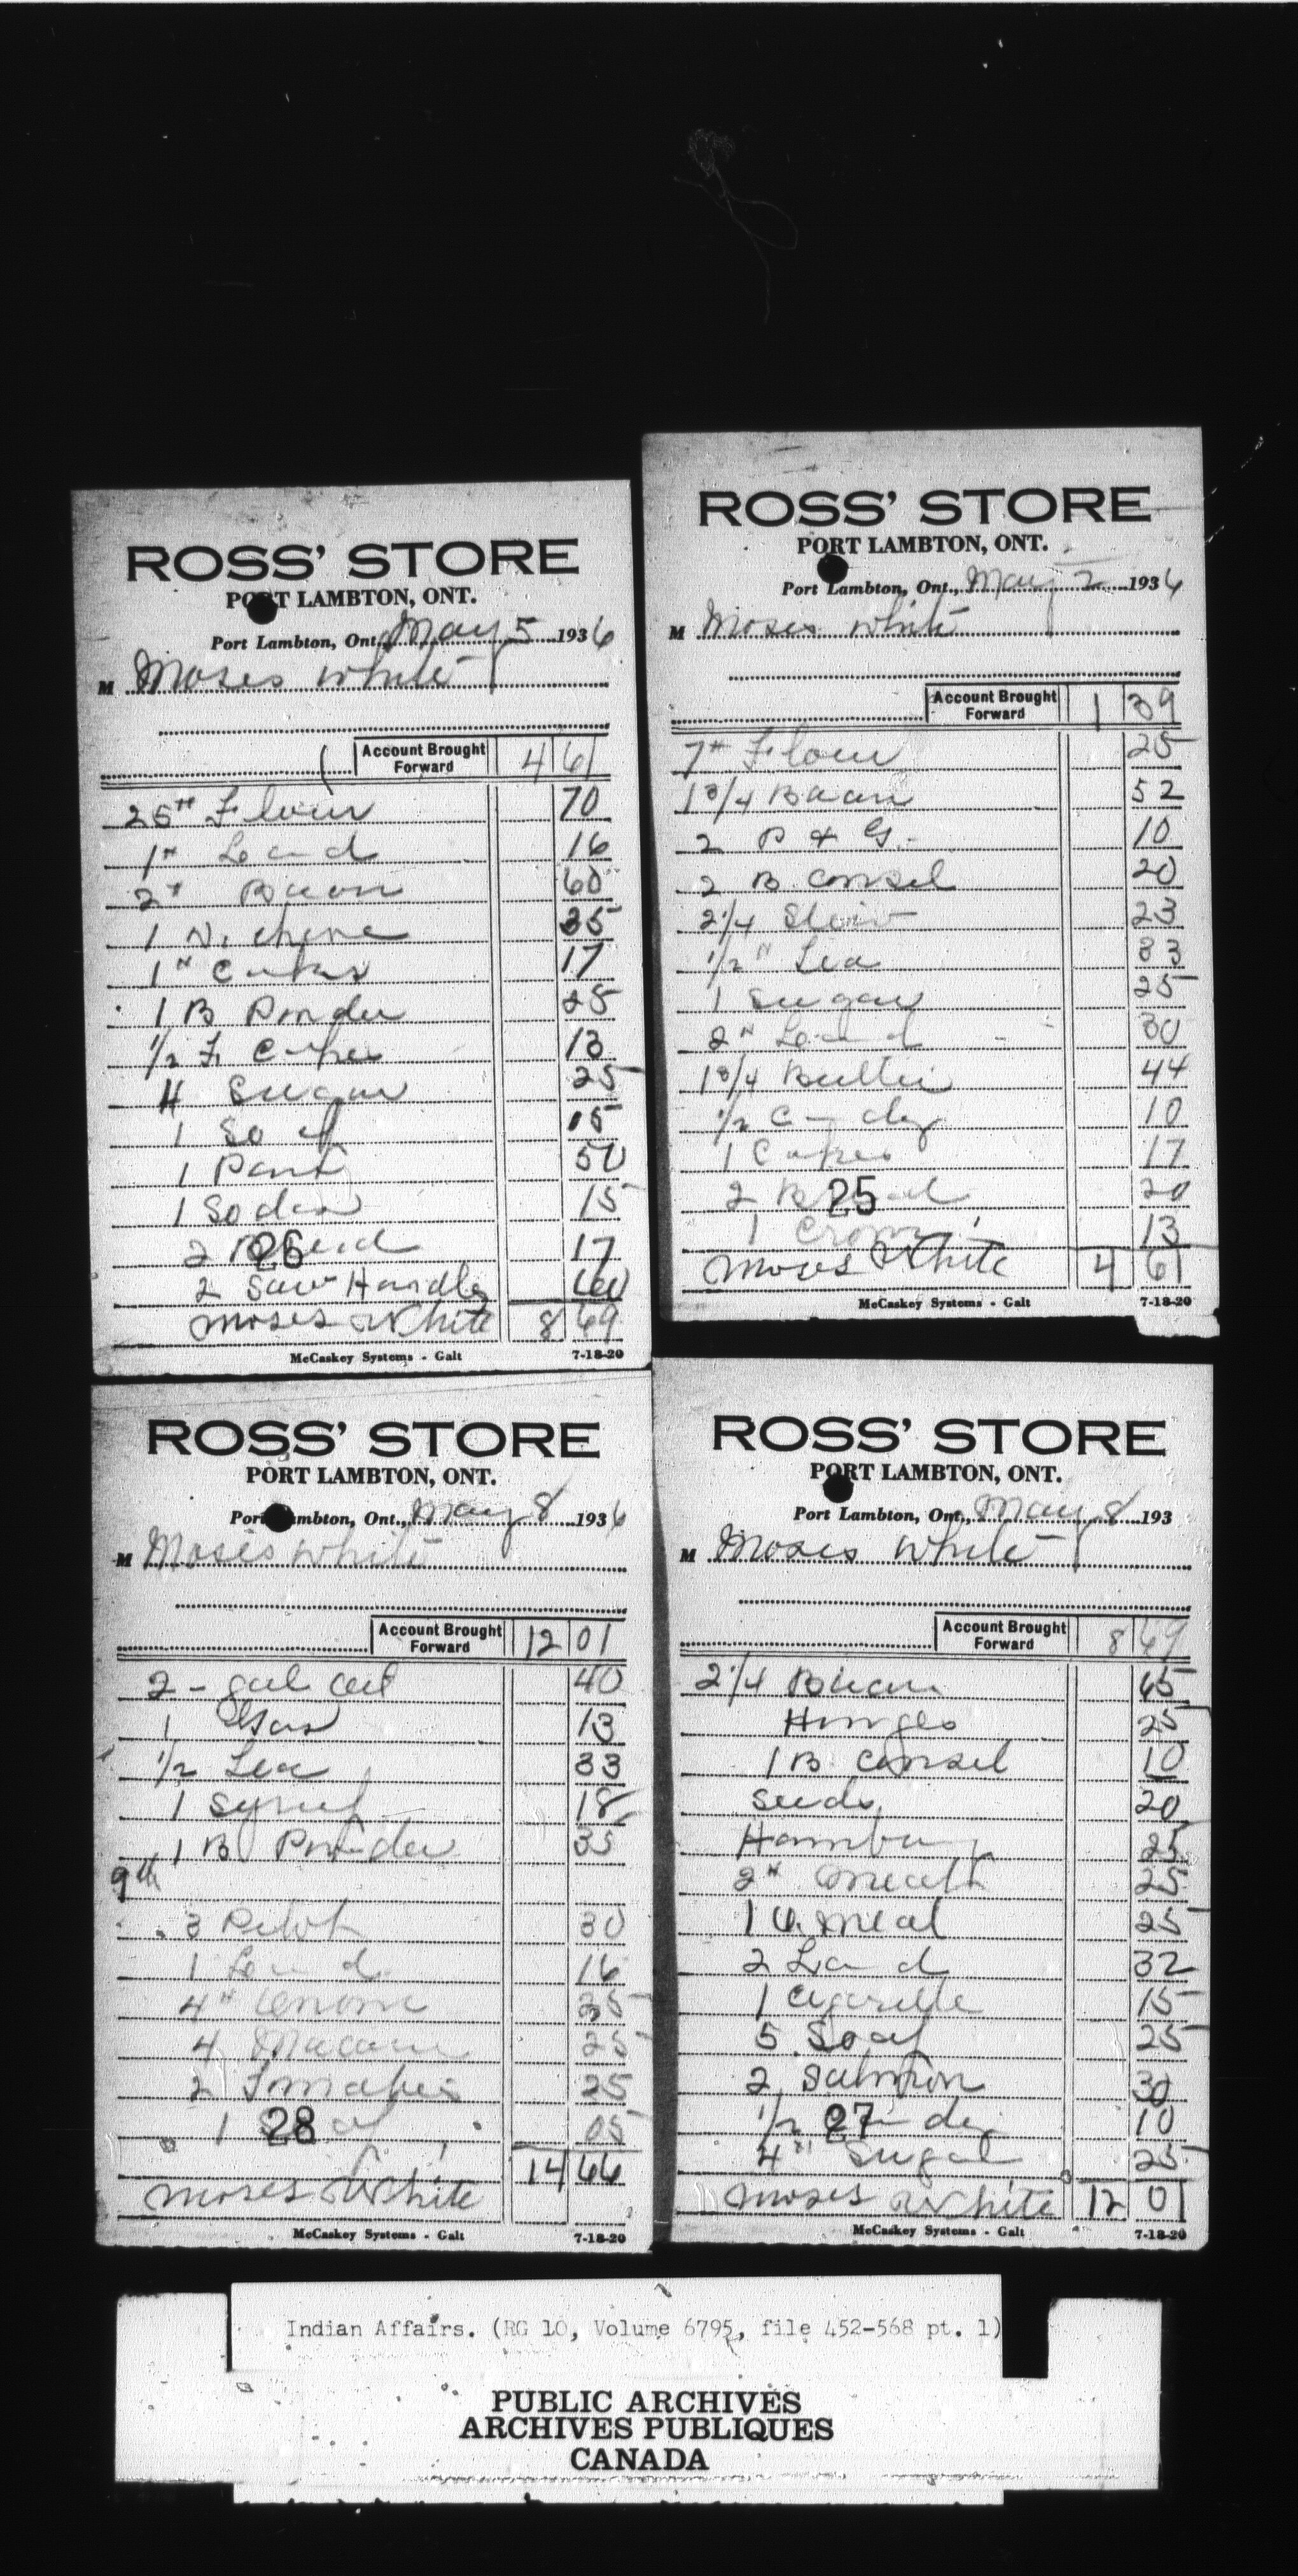 ROSS' STORE
PORT LAMBTON, ONT.
Port Lambton, Ont., May 5 1936
M Moses White
Account Brought Forward 4 61
25# Flour 70
1# Lard 16
2# Bacon 60
1 N. cheese 35
1# Cakes 17
1 B Powder 25
1/2 F. Cakes 13
4 Sugar 25
1 Soap 15
1 Paint 50
1 Soda 15
2 Bread 17
26
2 Saw Handles 60
Moses White 8 69
McCaskey Systems - Galt 7-18-20
ROSS' STORE
PORT LAMBTON, ONT.
Port Lambton, Ont., May 2 1936
M Moses White
Account Brought Forward 1 39
7# Flour 25
1 3/4 Bacon 52
2 P & G. 10
2 B. 20
2 1/4 23
1/2 # Tea 33
1 Sugar 25
2# Lard 30
1 3/4 Butter 44
1/2 Candy 10
1 Cakes 17
2 Bread 20
25
1 13
Moses White 4 61
McCaskey Systems - Galt 7-18-20
ROSS' STORE
PORT LAMBTON, ONT.
Port Lambton, Ont., May 8 1936
M Moses White
Account Brought Forward 12 01
2 - gal oil 40
1 Gas 13
1/2 Tea 33
1 Syrup 18
1 B Powder 35
9th
3 30
1 Lard 16
4# 25
4 Macaroni 25
2 Tomatoes 25
1 Soap 05
28
14 66
Moses White
McCaskey Systems - Galt 7-18-20
ROSS' STORE
PORT LAMBTON, ONT.
Port Lambton, Ont., May 8 193
M Moses White
Account Brought Forward 8 69
2 1/4 Bacon 65
Hinges 25
1 B. 10
Seeds 20
Hamburg 25
2# 25
1 meal 25
2 Lard 32
1 Cigarette 15
5 Soap 25
2 Salmon 30
1/2 Candy 10
27
4# Sugar 25
Moses White 12 01
McCaskey Systems - Galt 7-18-20
Indian Affairs. (RG 10, Volume 6795, file 452-568 pt. 1)
PUBLIC ARCHIVES
ARCHIVES PUBLIQUES
CANADA